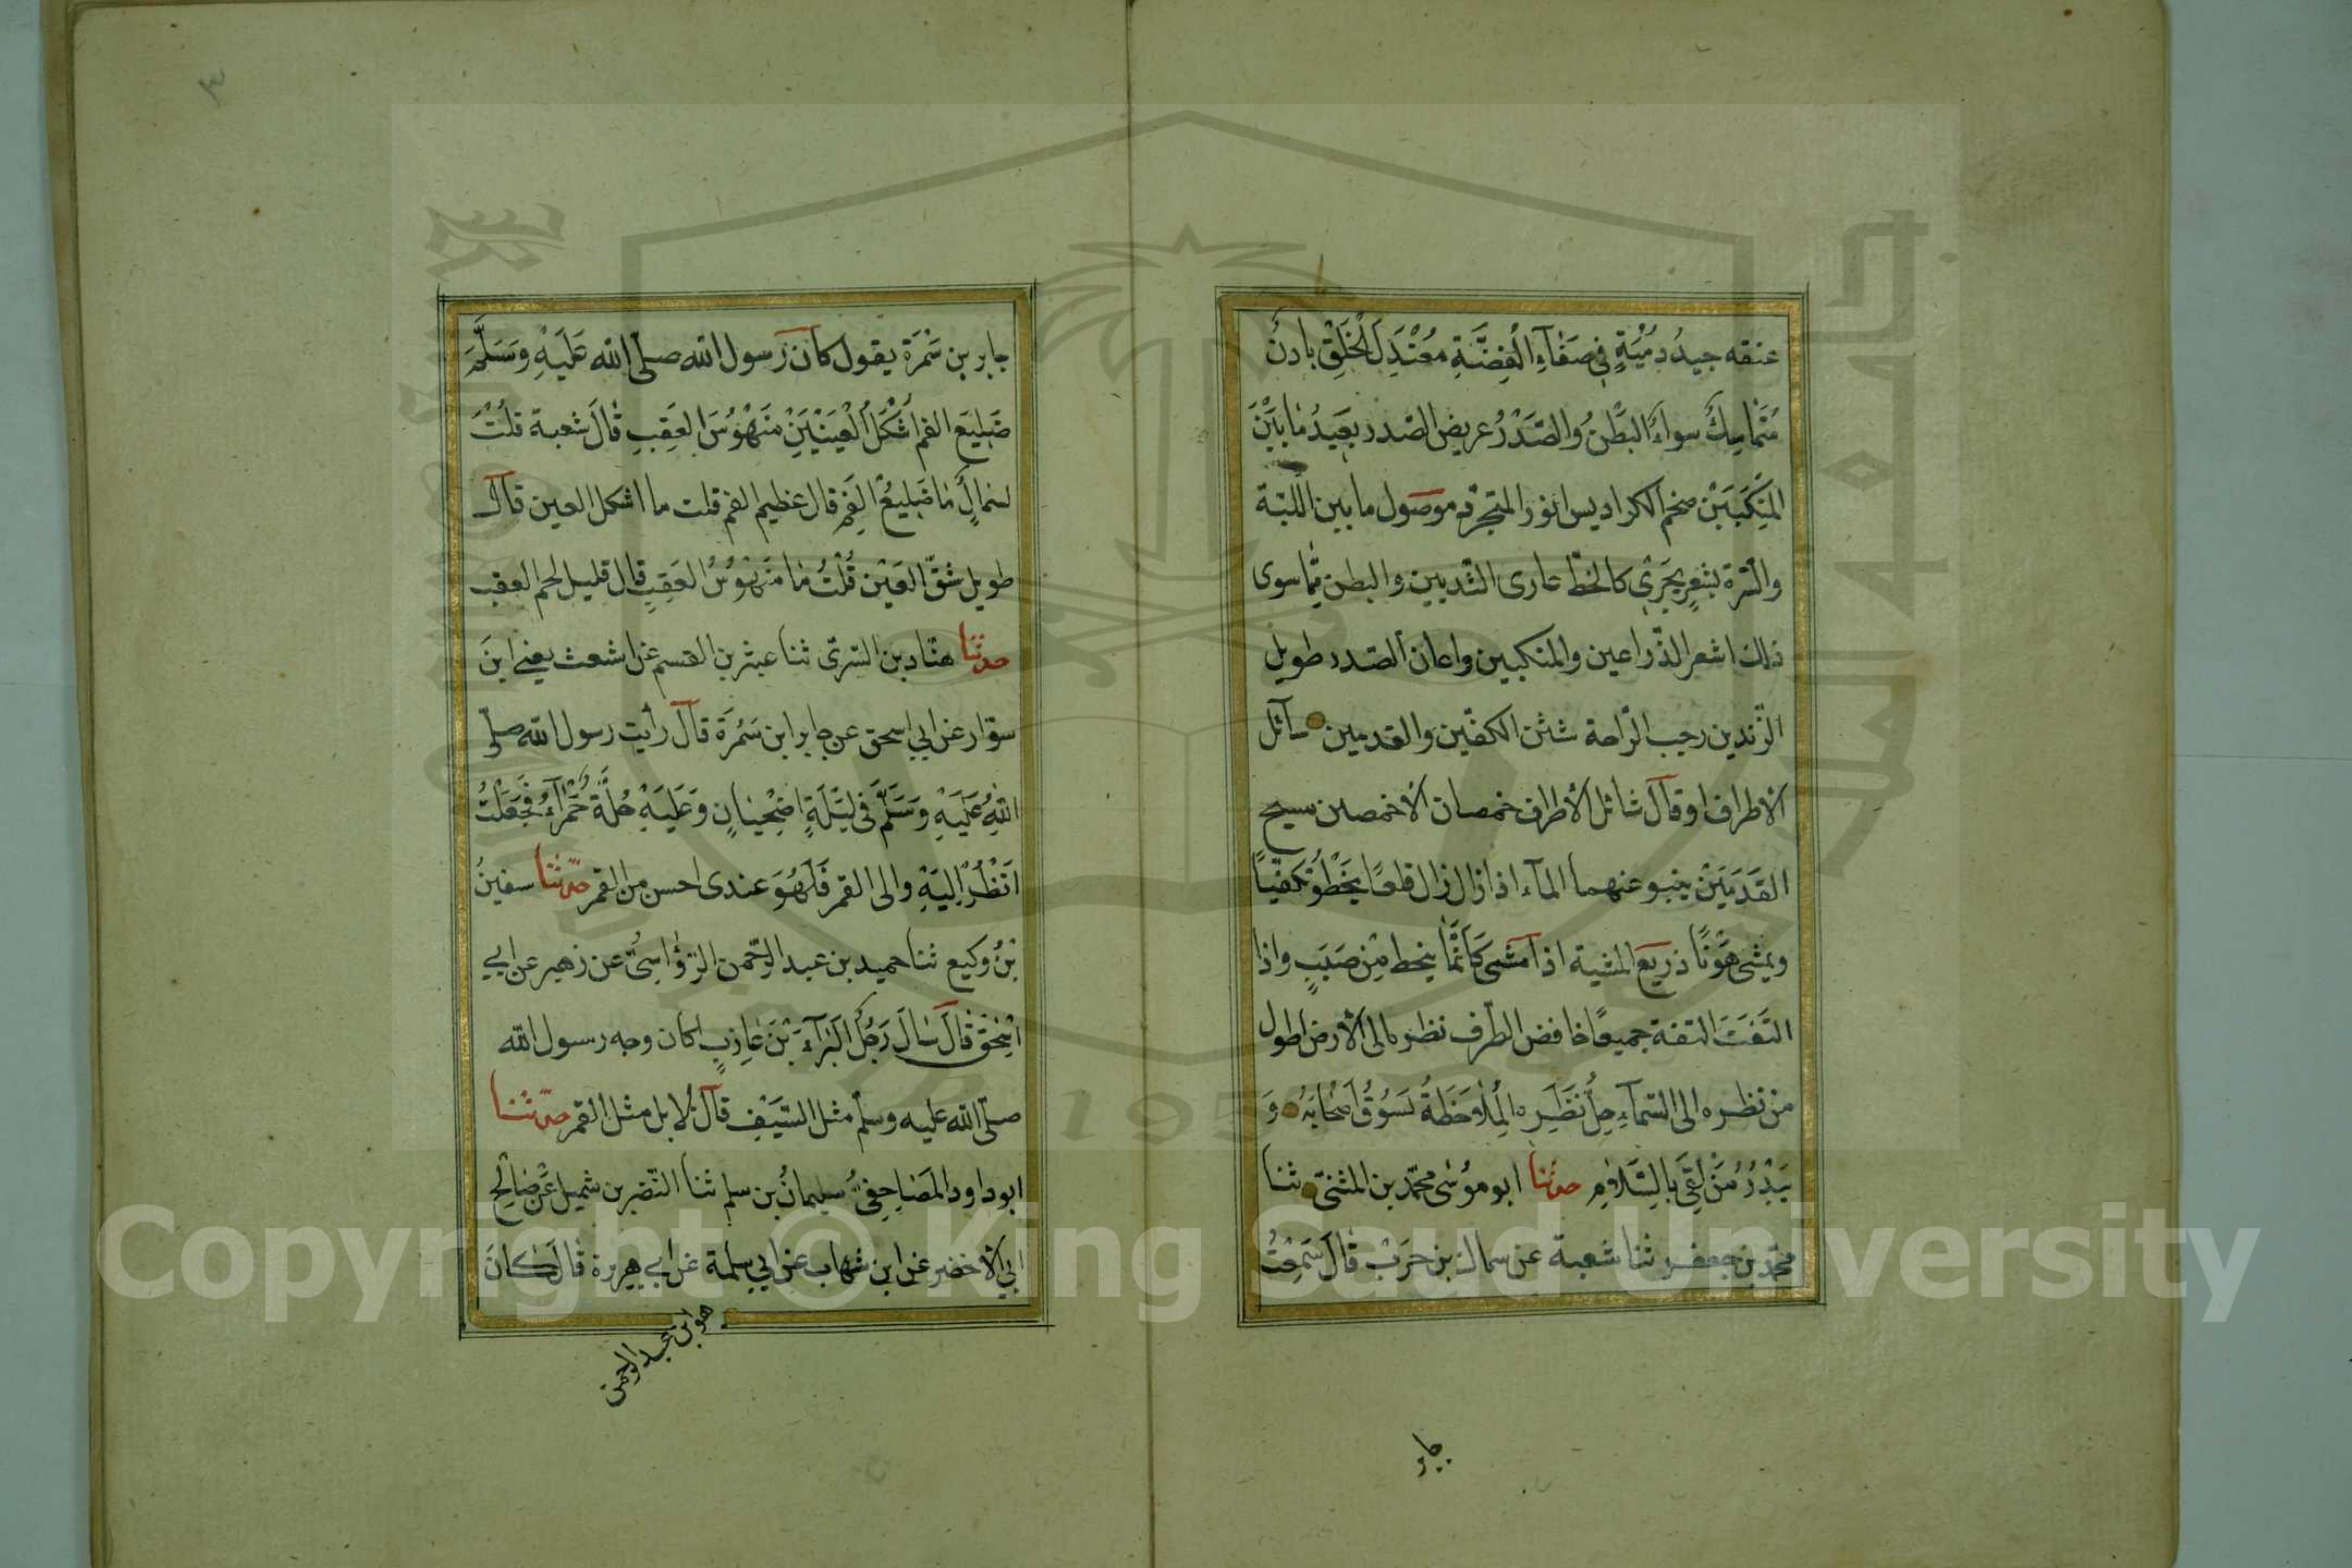 عنقه جيدُ دُمْيَةٍ في صَفَآءِ الْفِضَّةِ مُعْتَدِلَ الْخَلْقِ بادنٌ
مُتَمَاسِكٌ سواءُ البَطْنُ والصَّدْرُ عريض الصّدر بَعِيدُ مَا بَيْنَ
المَنْكَبَيْن ضخم الكراديس انور المتجرّد موصول ما بين اللّبّة
والسّرّة بشعرٍ يجري كالخطّ عارى الثّديين والبطن ممّا سوى
ذلك اشعر الذّراعين والمنكبين واعان الصّدر طويل
الزّندين رحب الرّاحة شثن الكفّين والقدمين سآئل
الأطراف او قآل شائل الأطراف خمصان الأخمصين مسيح
القَدَمَيْن ينبو عنهما المآء اذا زال زال قلعًا يَخْطُو تكفّيًا
ويمشى هَوْنًا ذريع المشية اذا مشى كَاَنَّمَا ينحط مِنْ صَبَبٍ واذا
التَفَتَ التفت جميعًا خافض الطّرف نظره الى الأرض اطول
من نظره الى السّمآء جلُّ نَظَرِه المُلاَحَظَةُ يَسُوقُ اَصْحَابَهُ وَ
يَبْدُرُ مَنْ لَقِيَ بِالسَّلاَمِ حدثنا ابو مُوسٰى محمّد بن المثنىّ ثنا
محمّد بن جعفر ثنا شعبة عن سماك بن حَرْبْ قَالَ سَمِعْتُ
جابر
جابر بن سَمُرَة يقول كان رسول الله صلّى الله عَلَيْهِ وَسَلَّمَ
ضَلِيعَ الفم اَشْكَلَ الْعَيْنَيْنِ مَنْهُوسَ العَقِبِ قَالَ شعبة قلْتُ
لسماكٍ مَا ضَلِيعُ الفَمِ قال عظيم الفم قلت ما اشكل العين قآل
طويل شقّ العَيْن قُلْتُ مَا مَنْهُوسُ العَقِبِ قال قليل لحم العقب
حدثنا هنّاد بن السّرىّ ثنا عبثر بن القسم عن اشعث يعنى ابنَ
سوّار عن ابي اسحق عن جابر ابن سَمُرَة قآل رأيت رسول الله صلّى
اللهُ عَلَيْهِ وَسَلَّمَ فى لَيْلَةٍ اضِحْيَانٍ وَعَلَيْهِ حُلَّةٌ حَمْرَآءُ فَجَعَلْتُ
اَنْظُرُ اِلَيْهِ والى القمر فَلَهُوَ عندى احسن من القمر حدّثنا سفينُ
بْنُ وكيع ثنا حميد بن عبد الرّحمن الرّؤاسىّ عن زهير عن ابي
اسْحَقَ قَالَ سَالَ رَجُلٌ الْبَرَآءَ بْنَ عَازِبٍ اكان وجه رسول الله
صلّى الله عليه وسلّم مثل السّيْفِ قآل لا بل مثل القمر حدّثنا
ابو داود المَصَاحِفِىُّ سليمانُ بن سلم ثنا النّضر بن شميل عَنْ صَالِحِ
ابي الأخضر عن ابن شهاب عن ابي سلمة عن ابي هريرة قَالَ كَانَ
هو ابن عبد الرحمن
Copyright © King Saud University